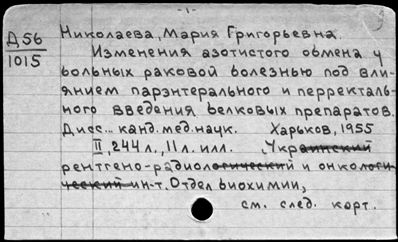 - 1 -
Д56
1015
Николаева, Мария Григорьевна.
Изменения азотистого обмена у
больных раковой болезнью под вли-
янием парэнтерального и перректаль-
ного введения белковых препаратов.
Дисс... канд. мед. наук. Харьков, 1955
II, 244 л., 11 л. илл. Украинский
рентгено-радиологический и онкологи-
ческий ин-т. Отдел биохимии,
см. след. карт.